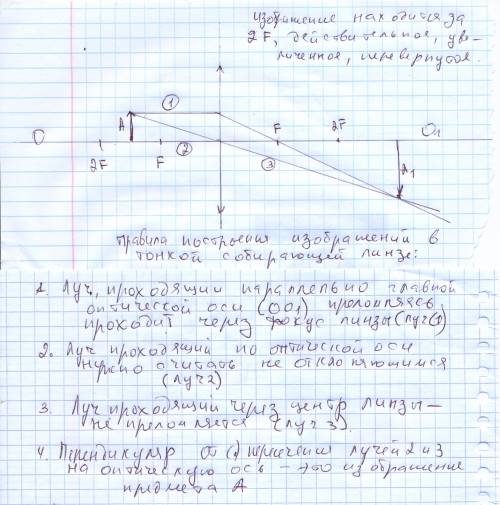 изображение находится за
2F, действительное, уве-
личенное, перевернутое.
1
A
O
2
F
2F
O1
2F
F
3
A1
Правила построения изображений в
тонкой собирающей линзе:
1. Луч, проходящий параллельно главной
оптической оси (OO1) преломляясь
проходит через фокус линзы (луч 1)
2. Луч проходящий по оптической оси
нужно считать не отклоняющимся
(луч 2)
3. Луч проходящий через центр линзы —
не преломляется (луч 3).
4. Перпендикуляр от пересечения лучей 2 и 3
на оптическую ось — это изображение
предмета A